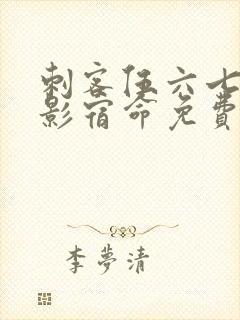 刺客伍六七
影宿命免费
李夢清